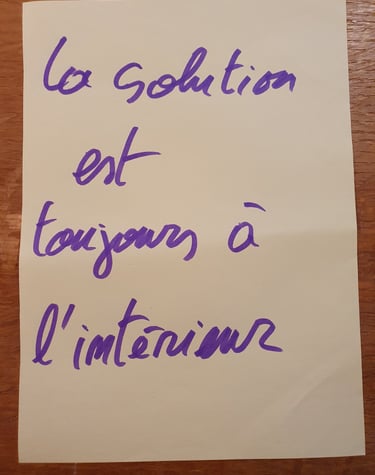 la solution
est
toujours à
l'intérieur